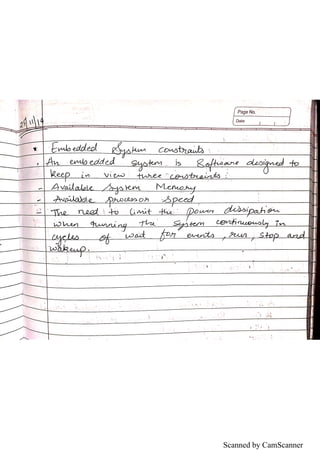 Page No.
Date:
27/11/19
* Embedded System constraints:
. An embedded System is Software designed to
keep in view three constraints:
- Available System Memory
- Available processor speed
- The need to limit the power dissipation
when running the System continuously in
cycles of wait for events, run, stop and
wakeup.
Scanned by CamScanner